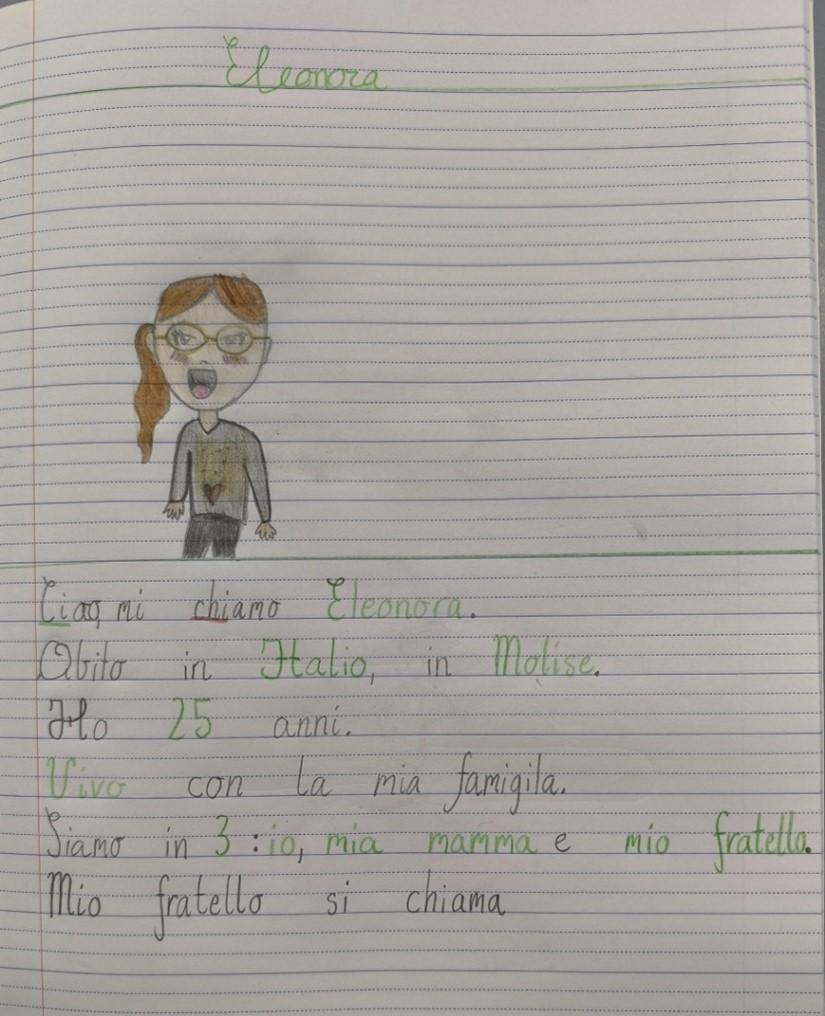 Eleonora
Ciao, mi chiamo Eleonora.
Abito in Italia, in Molise.
Ho 25 anni.
Vivo con la mia famigila.
Siamo in 3 : io, mia mamma e mio fratello.
Mio fratello si chiama